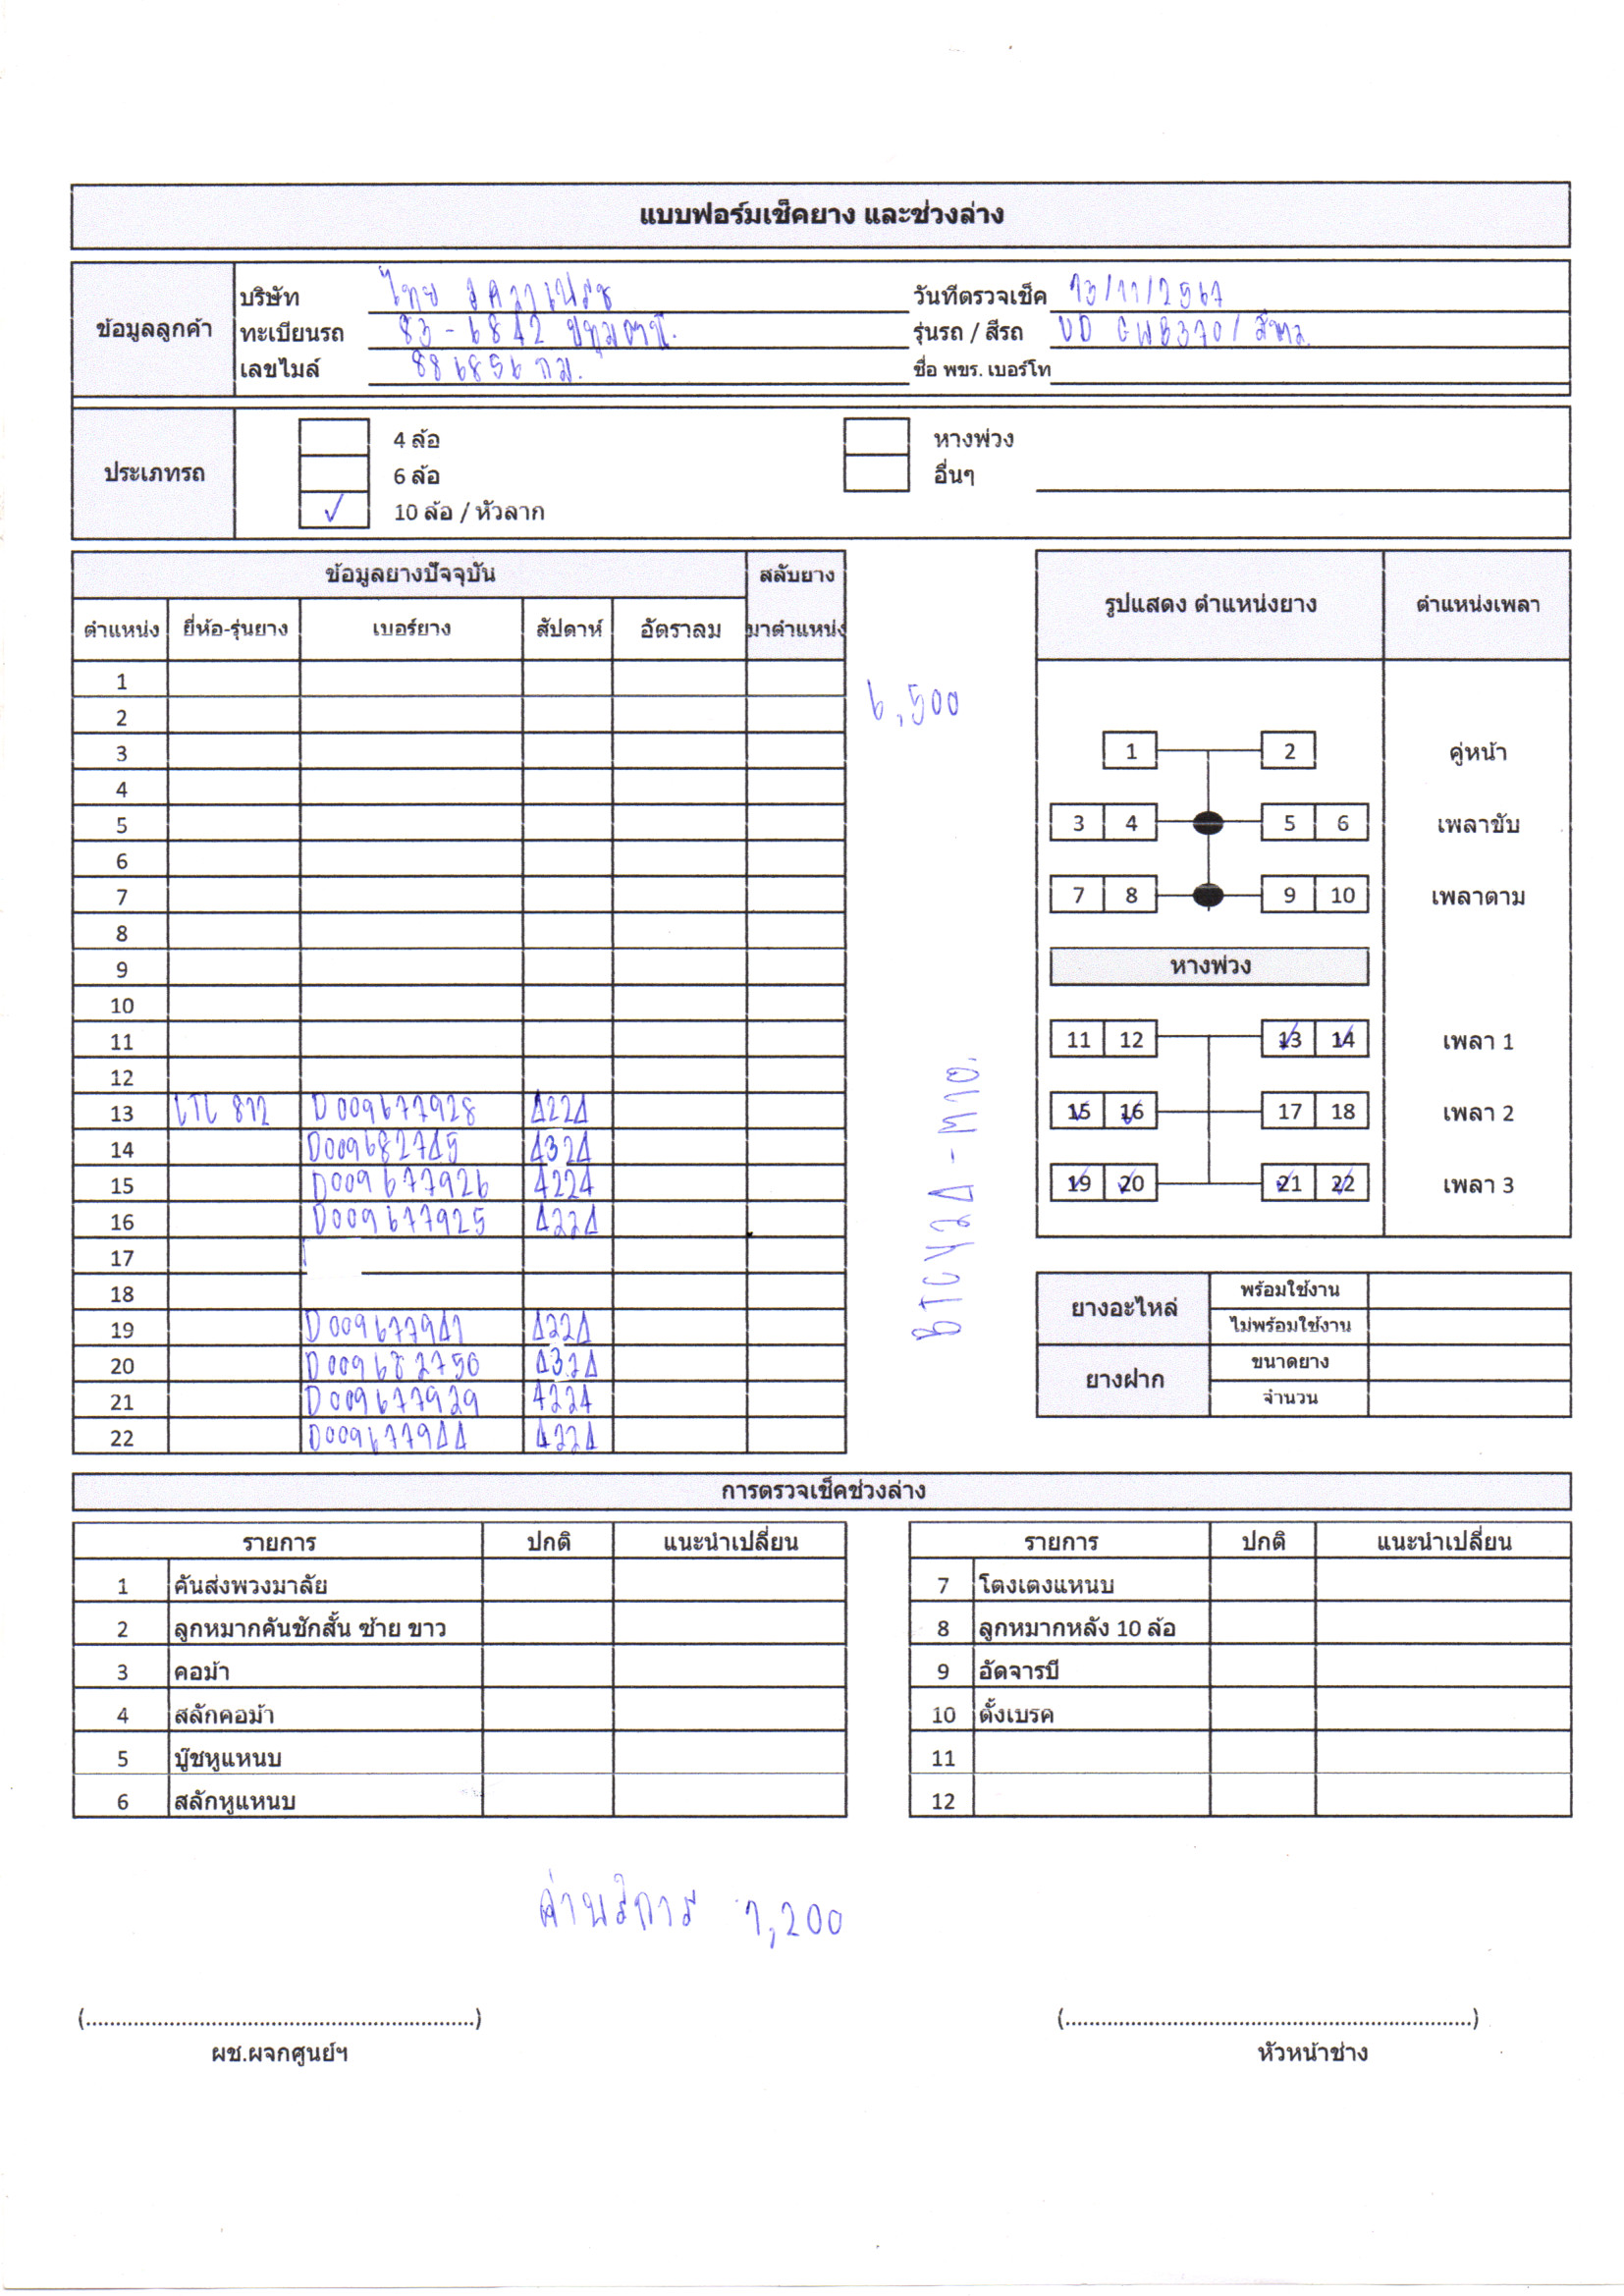 แบบฟอร์มเช็คยาง และช่วงล่าง
ข้อมูลลูกค้า
บริษัท ไทย
วันที่ตรวจเช็ค 13/11/2567
ทะเบียนรถ 83-6842 ปทุมธานี.
รุ่นรถ / สีรถ UD GWB370 /
เลขไมล์ 886856 กม.
ชื่อ พขร. เบอร์โท
ประเภทรถ
4 ล้อ
หางพ่วง
6 ล้อ
อื่นๆ
✓ 10 ล้อ / หัวลาก
ข้อมูลยางปัจจุบัน สลับยาง
ตำแหน่ง ยี่ห้อ-รุ่นยาง เบอร์ยาง สัปดาห์ อัตราลม มาตำแหน่ง
1
2
3
4
5
6
7
8
9
10
11
12
13 812 D009677928 4224
14 D009682745 4324
15 D009677926 4224
16 D009677925 4224
17
18
19 D009677941 4224
20 D009682750 4324
21 D009677929 4224
22 D009677944 4224
6,500
รูปแสดง ตำแหน่งยาง ตำแหน่งเพลา
1 2 คู่หน้า
3 4 5 6 เพลาขับ
7 8 9 10 เพลาตาม
หางพ่วง
11 12 13 14 เพลา 1
15 16 17 18 เพลา 2
19 20 21 22 เพลา 3
ยางอะไหล่ พร้อมใช้งาน
ไม่พร้อมใช้งาน
ยางฝาก ขนาดยาง
จำนวน
การตรวจเช็คช่วงล่าง
รายการ ปกติ แนะนำเปลี่ยน
1 คันส่งพวงมาลัย
2 ลูกหมากคันชักสั้น ซ้าย ขาว
3 คอม้า
4 สลักคอม้า
5 บู๊ชหูแหนบ
6 สลักหูแหนบ
รายการ ปกติ แนะนำเปลี่ยน
7 โตงเตงแหนบ
8 ลูกหมากหลัง 10 ล้อ
9 อัดจารบี
10 ตั้งเบรค
11
12
ค่าบริการ 1,200
(................................................................)
ผช.ผจกศูนย์ฯ
(...................................................................)
หัวหน้าช่าง